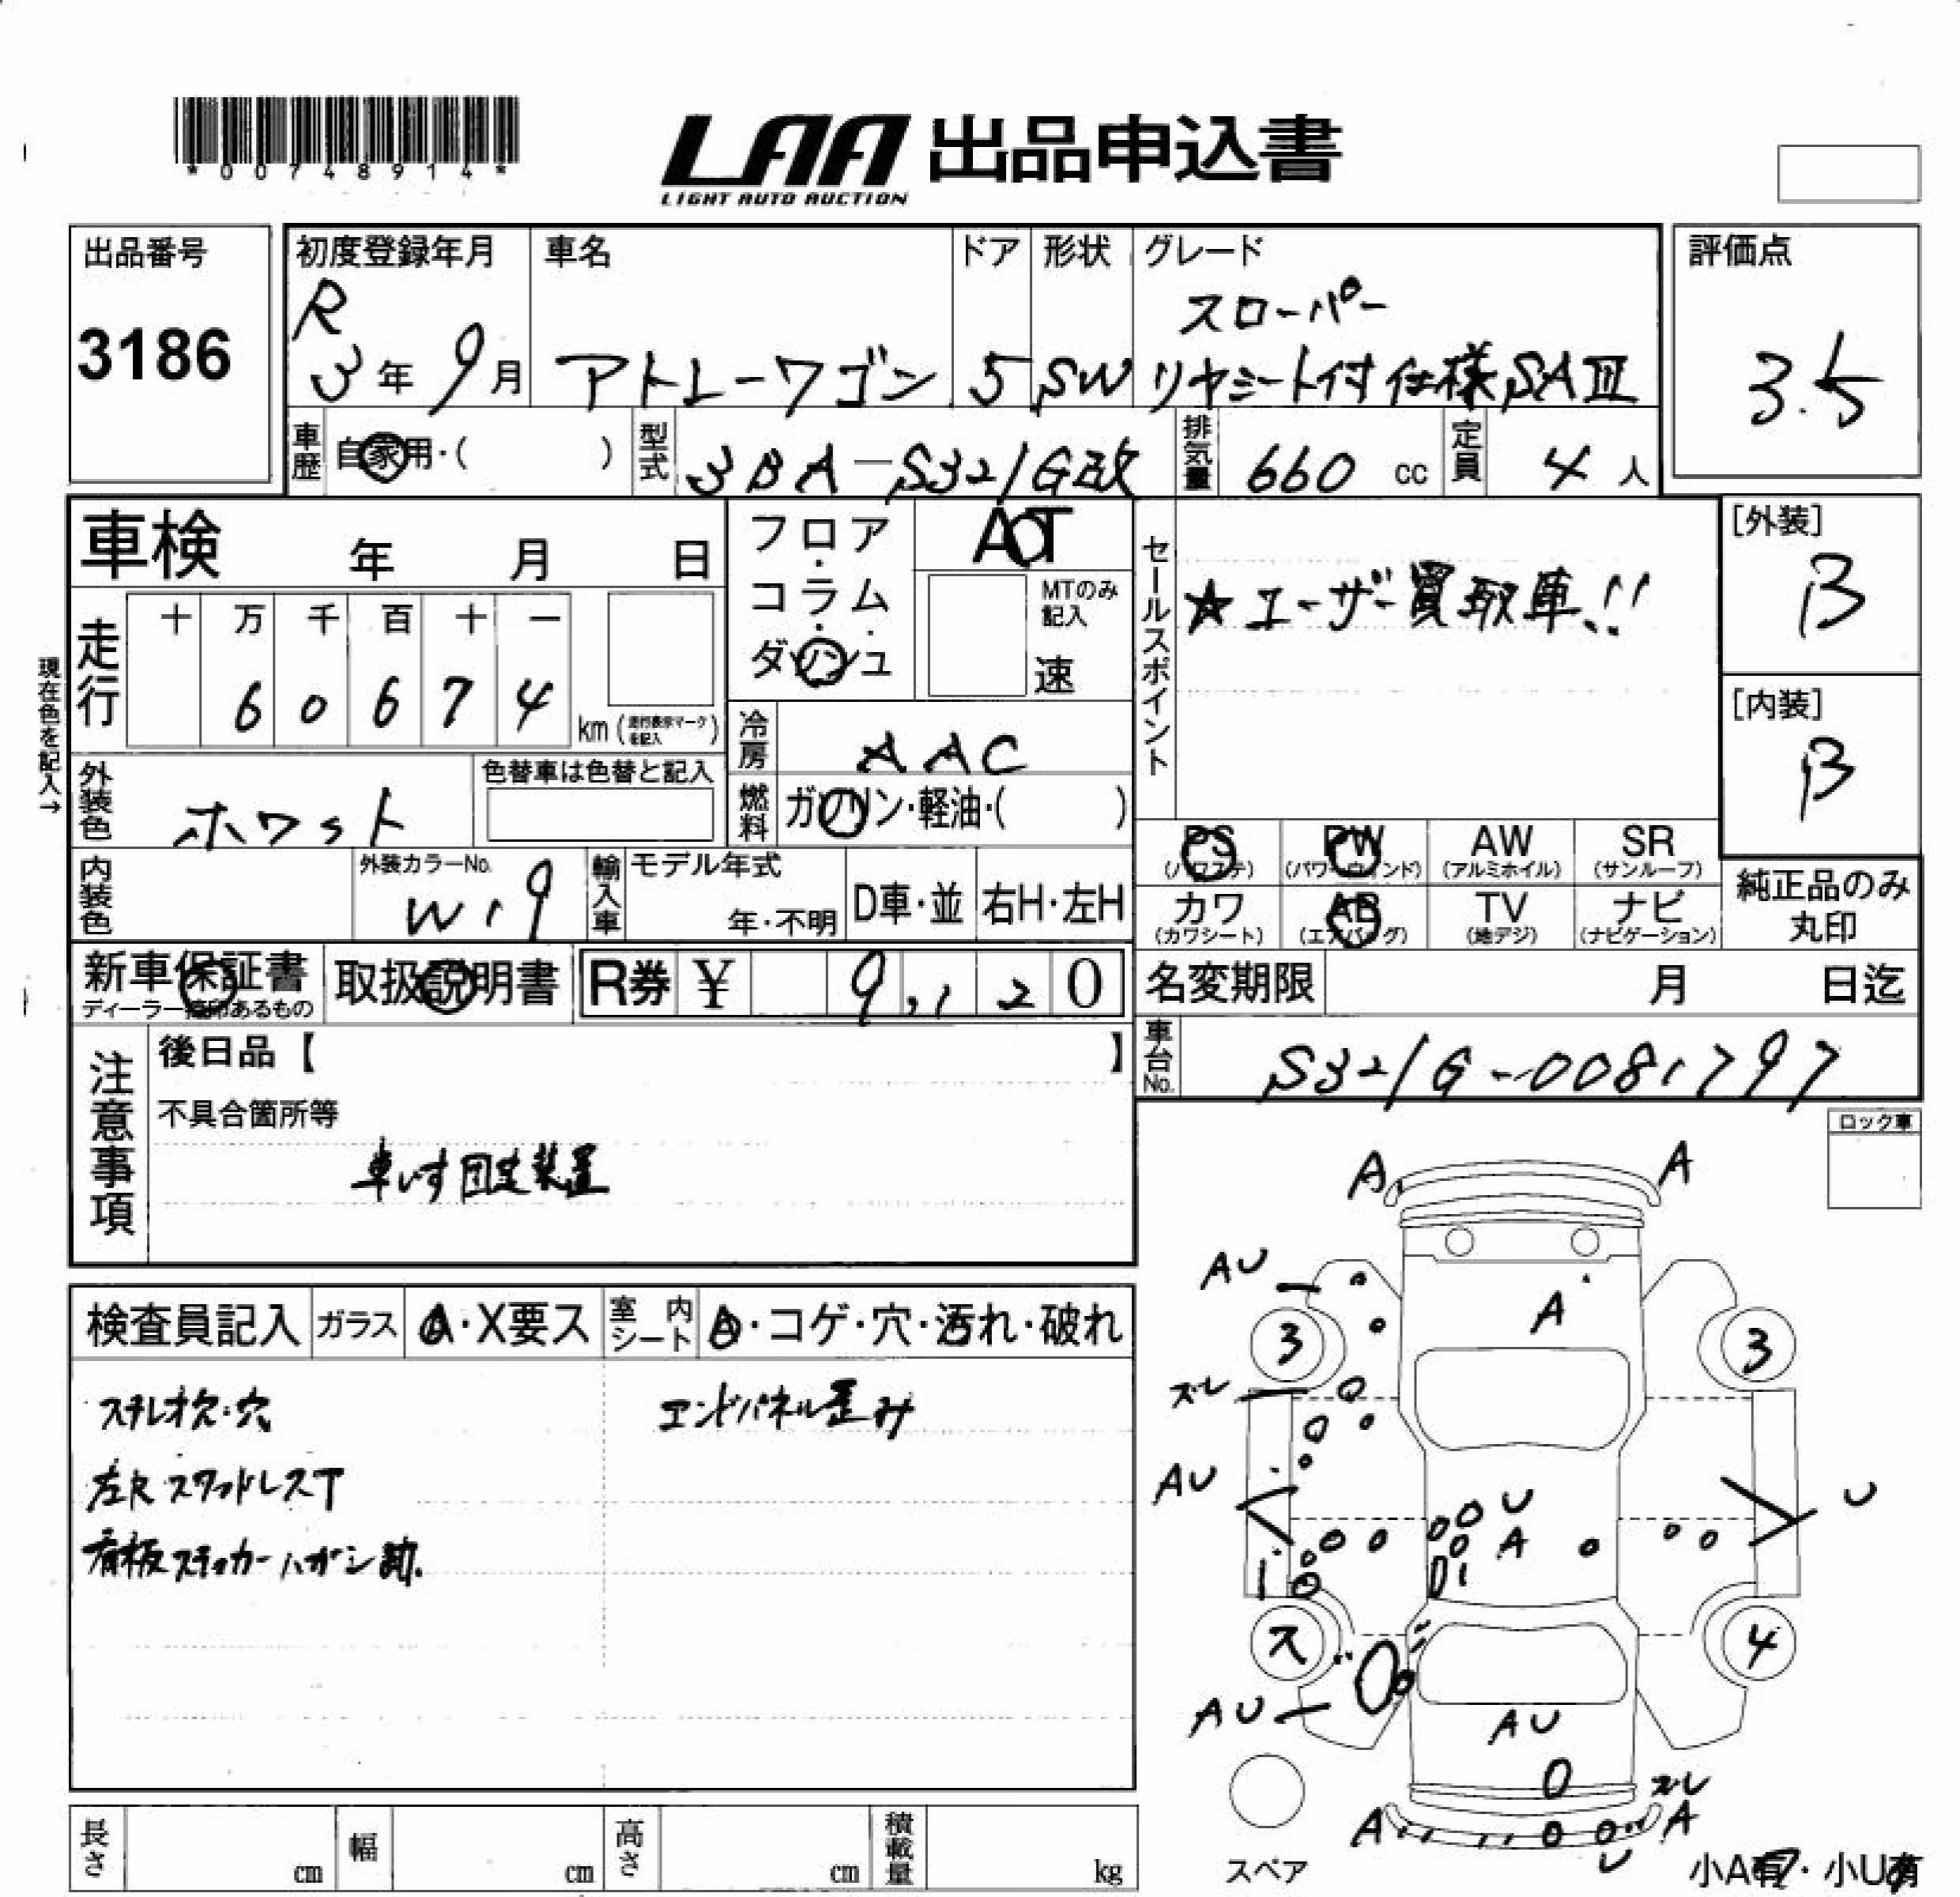 *00748914*
LAA 出品申込書
LIGHT AUTO AUCTION
出品番号
3186
初度登録年月
R
3年 9月
車名
アトレーワゴン
ドア
5
形状
SW
グレード
スローパー
リヤシート付仕様SAⅢ
評価点
3.5
車歴
自家用・( )
型式
3BA-S321G改
排気量
660 cc
定員
4 人
車検 年 月 日
フロア・コラム・ダッシュ
AT
MTのみ記入
速
セールスポイント
★ユーザー買取車!!
[外装]
B
[内装]
B
現在色を記入→
走行
十 万 千 百 十 一
6 0 6 7 4
km (走行表示マークを記入)
冷房
AAC
外装色
ホワット
色替車は色替と記入
燃料
ガソリン・軽油・( )
内装色
外装カラーNo.
W19
輸入車
モデル年式
年・不明
D車・並
右H・左H
PS (パワステ)
PW (パワーウインド)
AW (アルミホイル)
SR (サンルーフ)
カワ (カワシート)
AB (エアバッグ)
TV (地デジ)
ナビ (ナビゲーション)
純正品のみ
丸印
新車保証書
ディーラー捺印あるもの
取扱説明書
R券 ¥ 9,120
名変期限 月 日迄
車台No.
S321G-0081797
注意事項
後日品【 】
不具合箇所等
車いす固定装置
ロック車
検査員記入
ガラス
A・X要ス
室内シート
A・コゲ・穴・汚れ・破れ
ステレオ欠・穴
エンドパネル歪み
左R スタッドレスT
看板ステッカーハガシ跡.
A A
AU
A
3 3
ズレ
AU
U
U
A
ス 4
AU
AU
ズレ
A A
U
スペア
小A有・小U有
長さ cm
幅 cm
高さ cm
積載量 kg